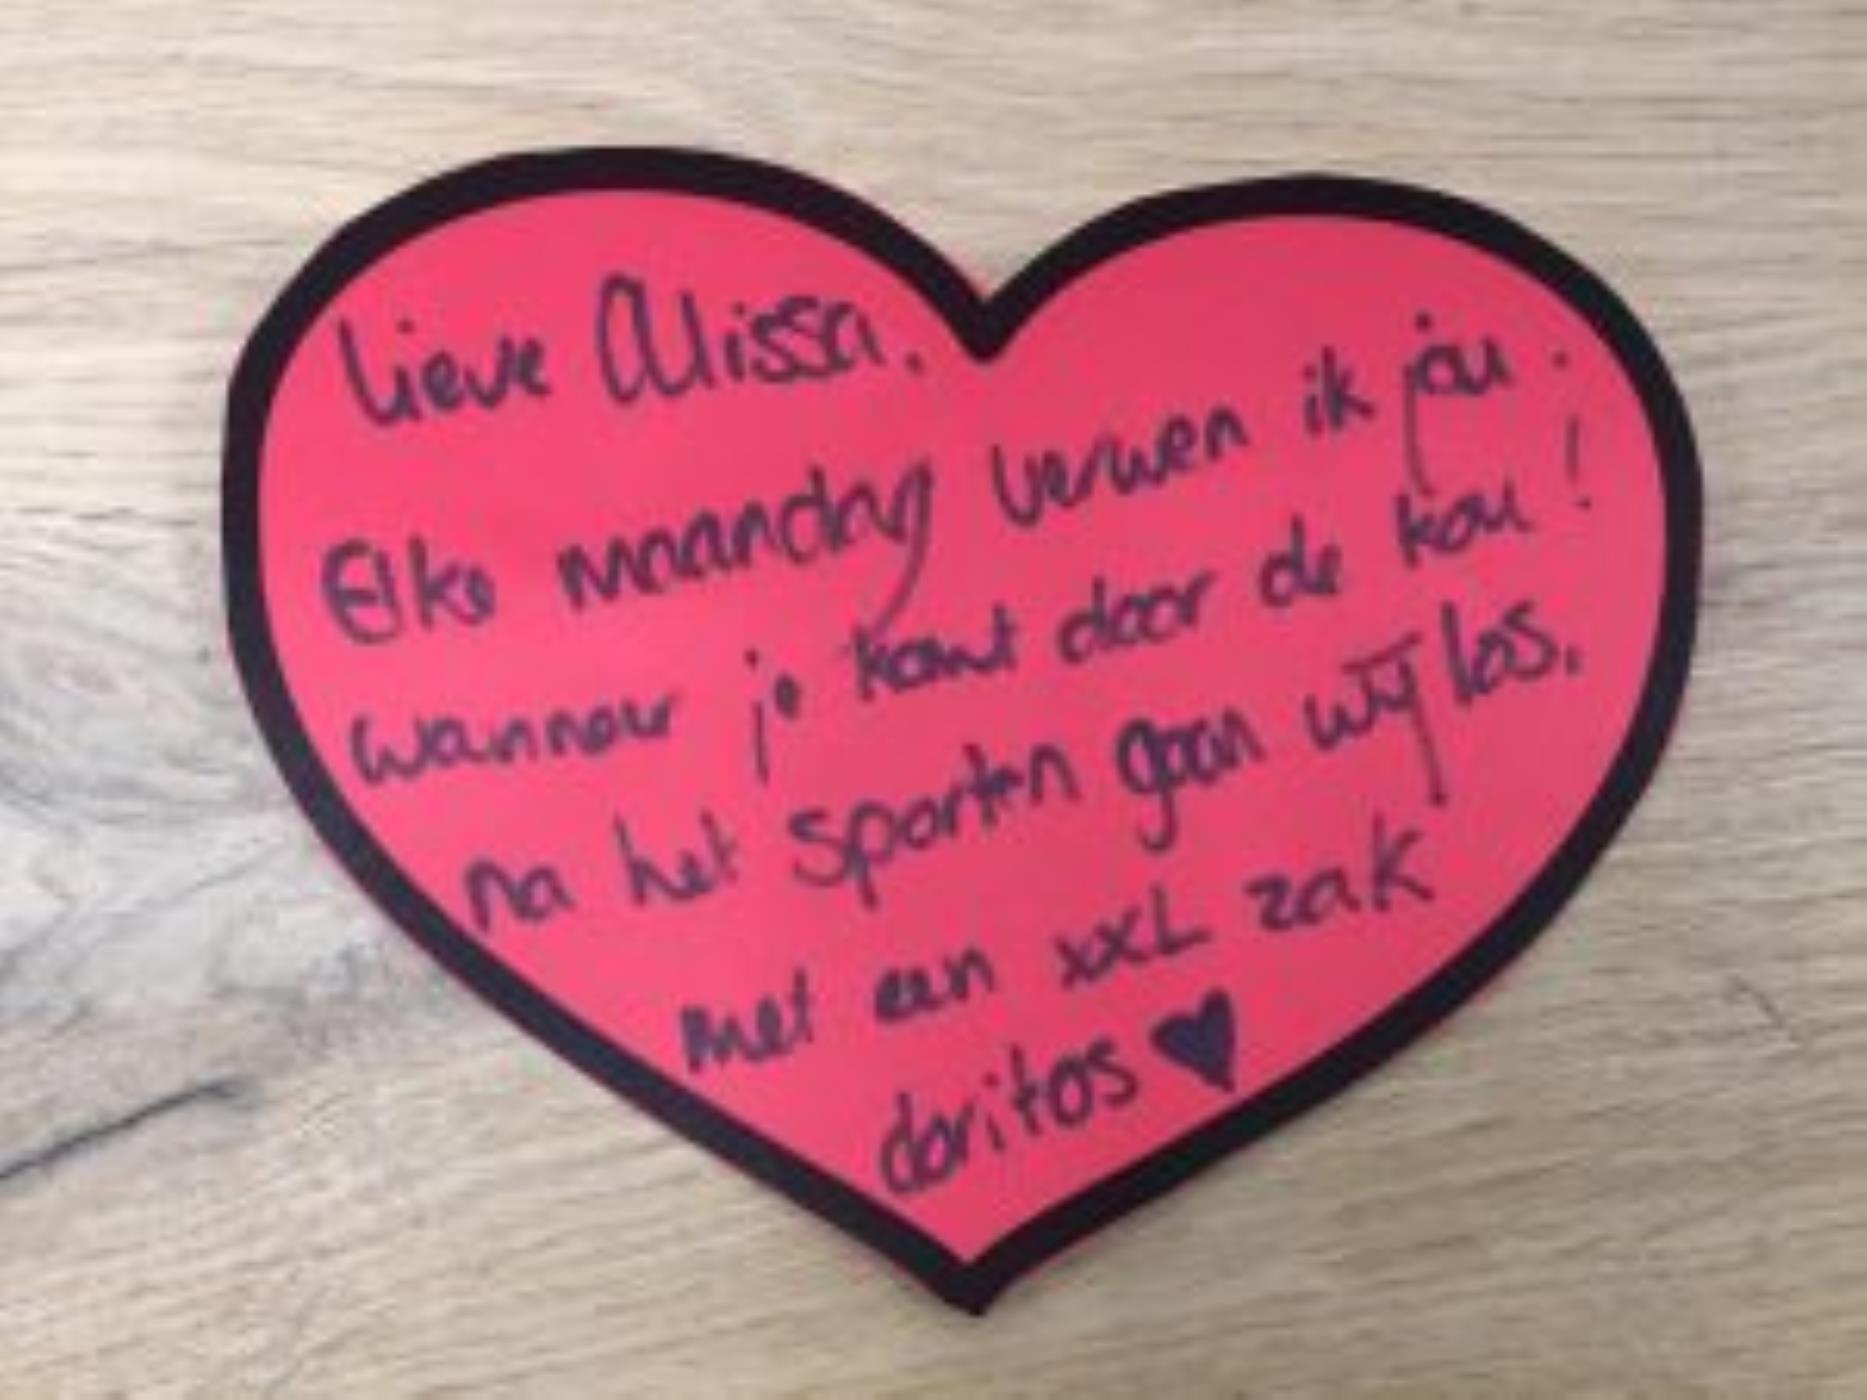 Lieve Alissa.
Elke maandag verwen ik jou.
wanneer je komt door de kou!
na het sporten gaan wij los.
met een xxL zak
doritos ♥